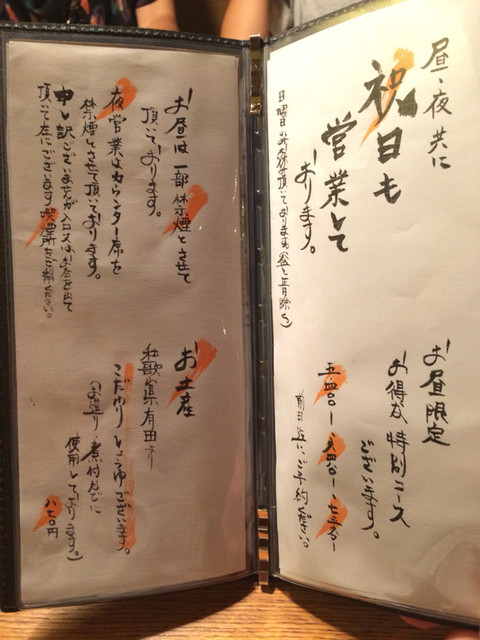 昼・夜共に
祝日も
営業して
おります。
日曜のみお休み頂いております。(盆と正月除く)
お昼限定
お得な特別コース
ございます。
前日迄にご予約ください。
お昼は一部禁煙とさせて
頂いております。
夜営業はカウンター席を
禁煙とさせて頂いております。
申し訳ございませんが入口又はお店を出て
頂いて左にございます喫煙所をご利用ください。
お土産
和歌山県有田より
こだわりしょうゆございます。
(お造り・煮付などに
使用しております。)
八七〇円